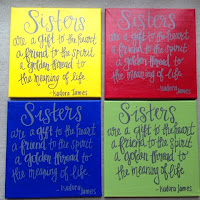 Sisters
are a gift to the heart
a friend to the spirit
a golden thread to
the meaning of life
-Isadora James
Sisters
are a gift to the heart
a friend to the spirit
a golden thread to
the meaning of life
-Isadora James
Sisters
are a gift to the heart
a friend to the spirit
a golden thread to
the meaning of life.
-Isadora
James
Sisters
are a gift to the heart
a friend to the spirit
a golden thread to
the meaning of life.
-Isadora
James